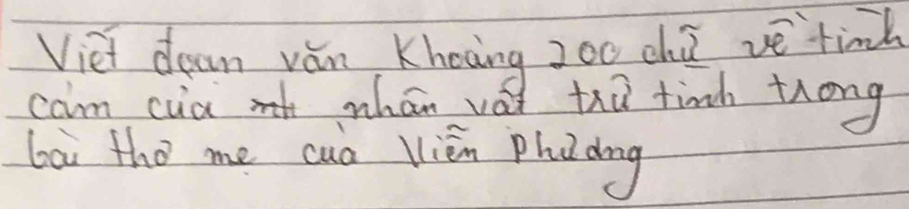 Viết đoạn văn Khoảng 200 chữ về tình
cảm của nhân vật trữ tình trong
bài thơ mẹ của Viễn Phương